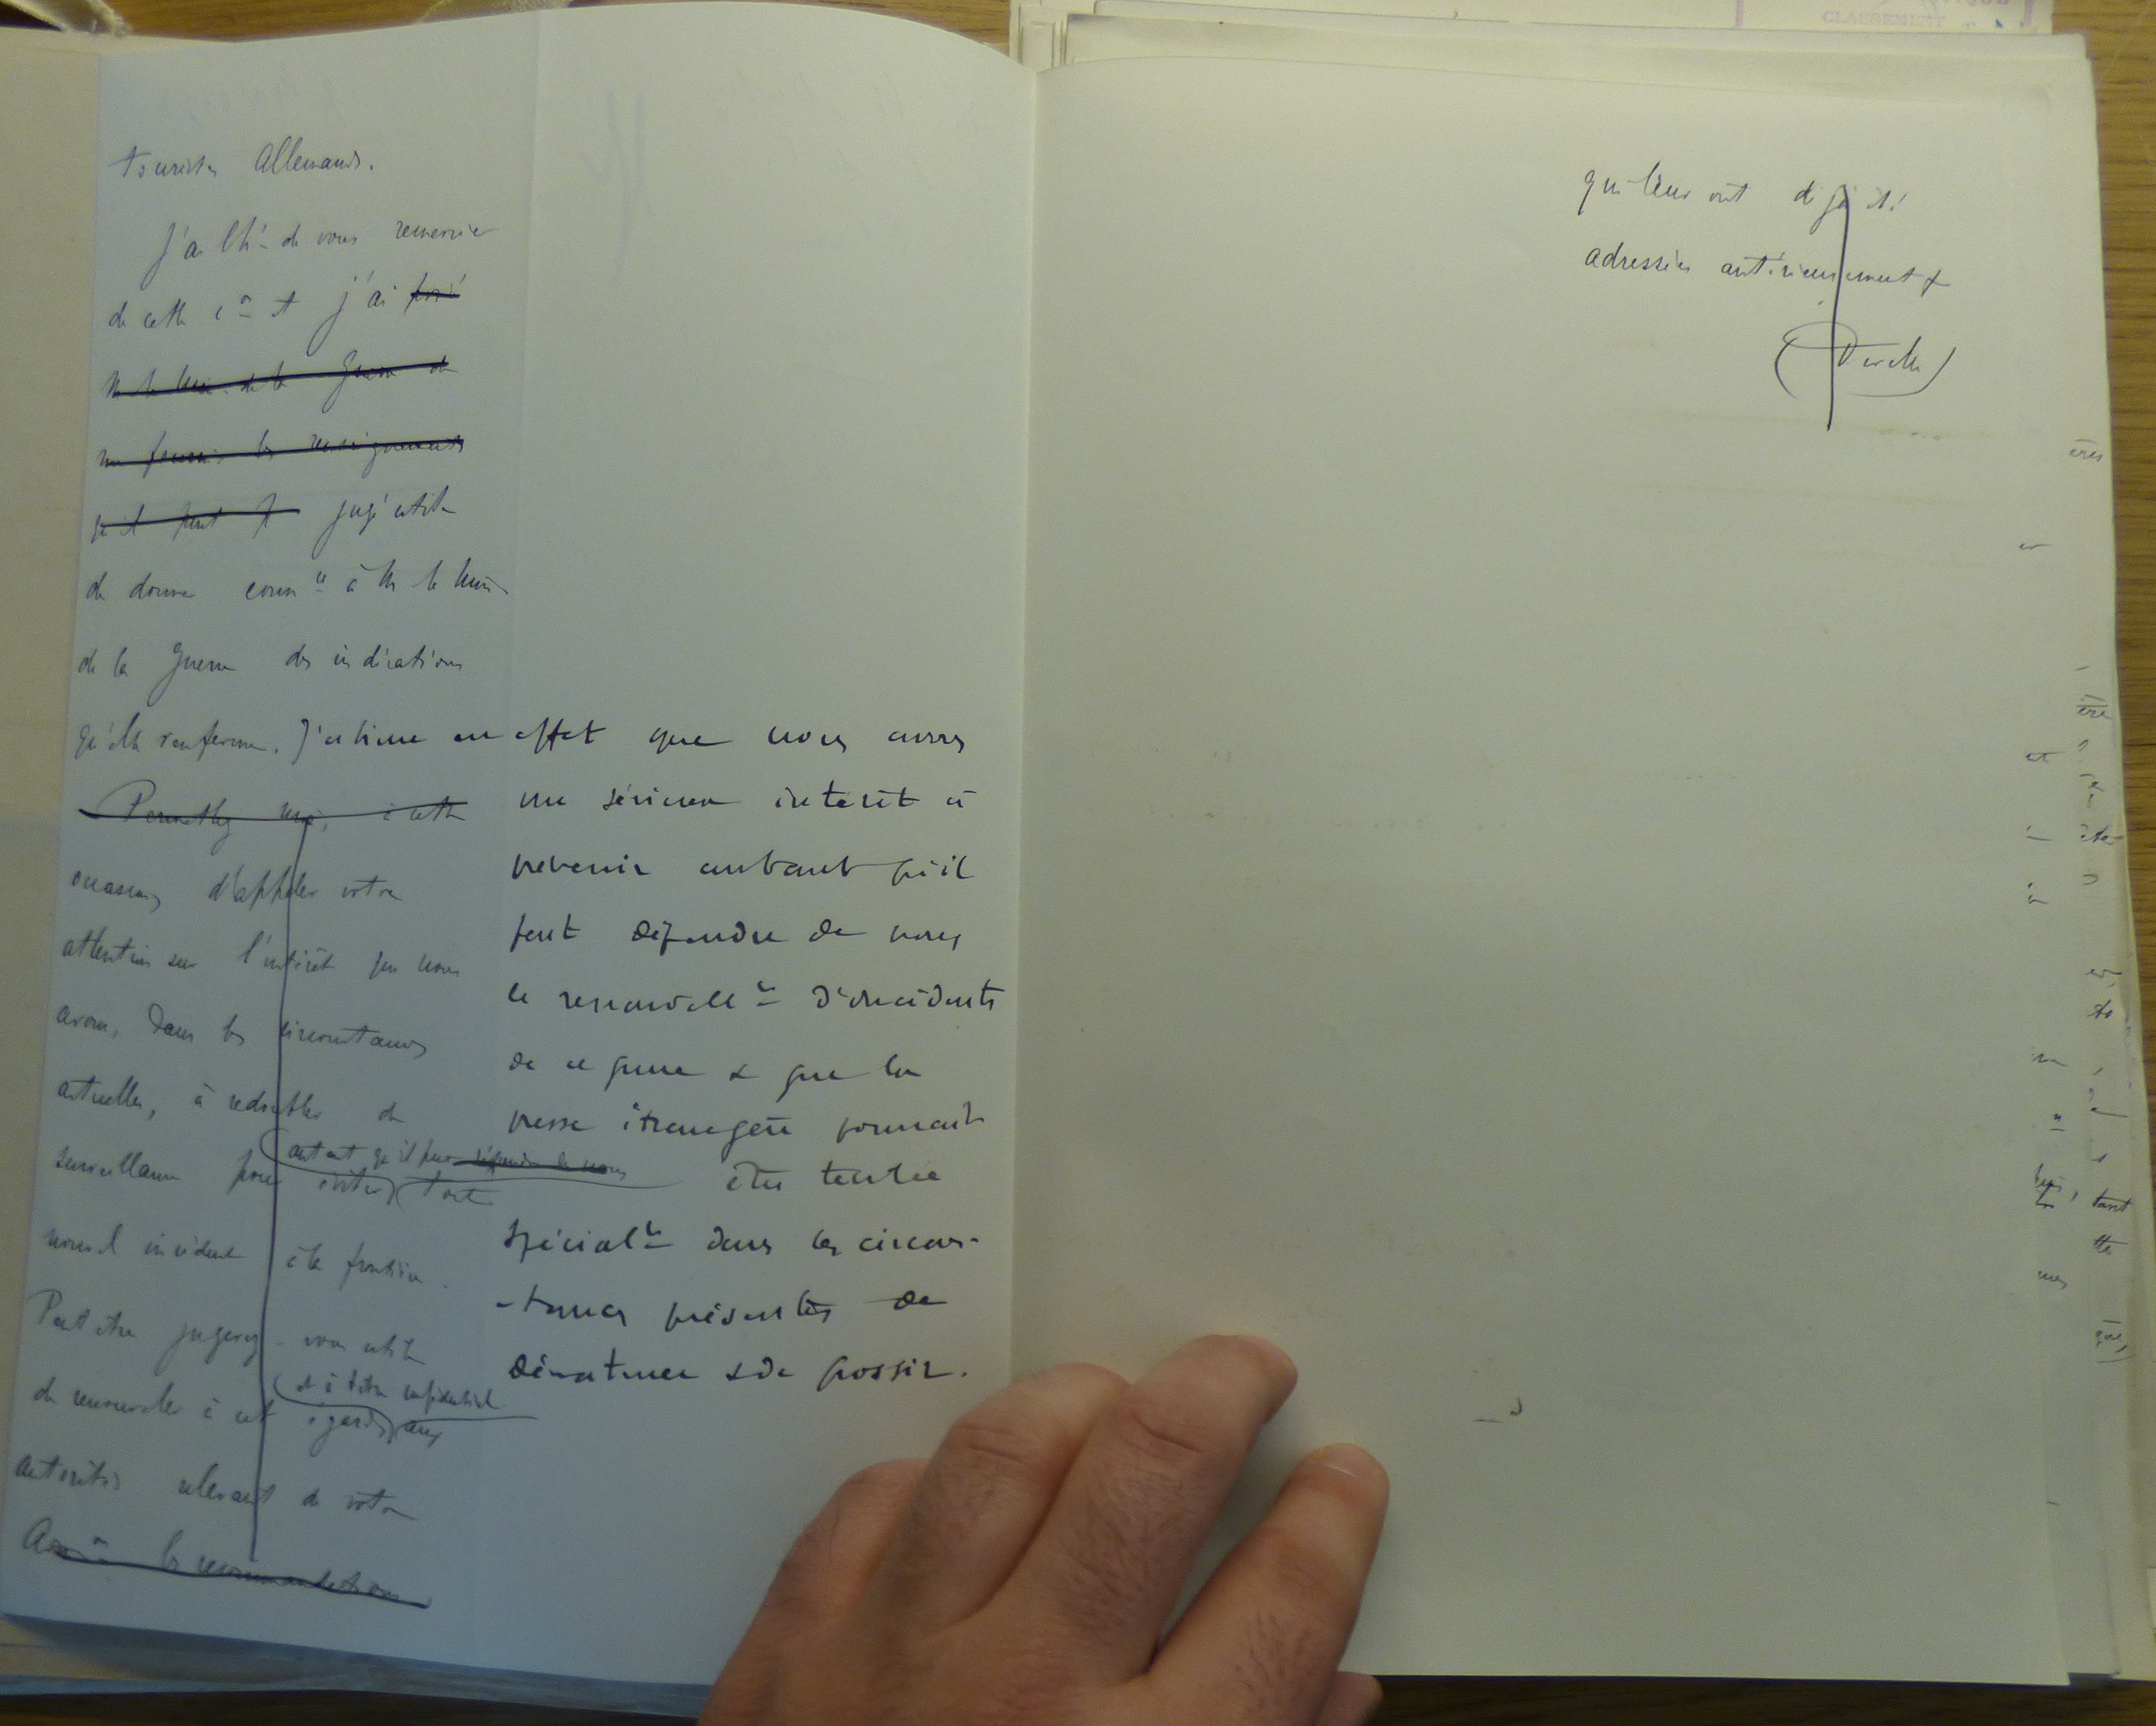 touristes Allemands.
J'ai l'hr de vous remercier
de cette con et j'ai prié
M. le Min. de la Guerre de
me fournir les renseignements
qu'il peut jugé utile
de donner connce à M. le Min.
de la Guerre des indications
qu'elle renferme. J'estime en effet que nous avons
un sérieux intérêt à
prévenir autant qu'il
peut dépendre de nous
le renouvellt d'incidents
de ce genre & que la
presse étrangère pourrait
être tentée
spécialt dans les circons-
-tances présentes de
dénaturer & de grossir.
Permettez moi, à cette
occasion, d'appeler votre
attention sur l'intérêt que nous
avons, dans les circonstances
actuelles, à redoubler de
autant qu'il peut dépendre de nous
surveillance pour éviter tout
nouvel incident à la frontière.
Peut être jugerez-vous utile
et à titre confidentiel
de renouveler à cet égard aux
autorités relevant de votre
les recommandations
qui leur ont déjà été
adressées antérieurement
CLASSEMENT